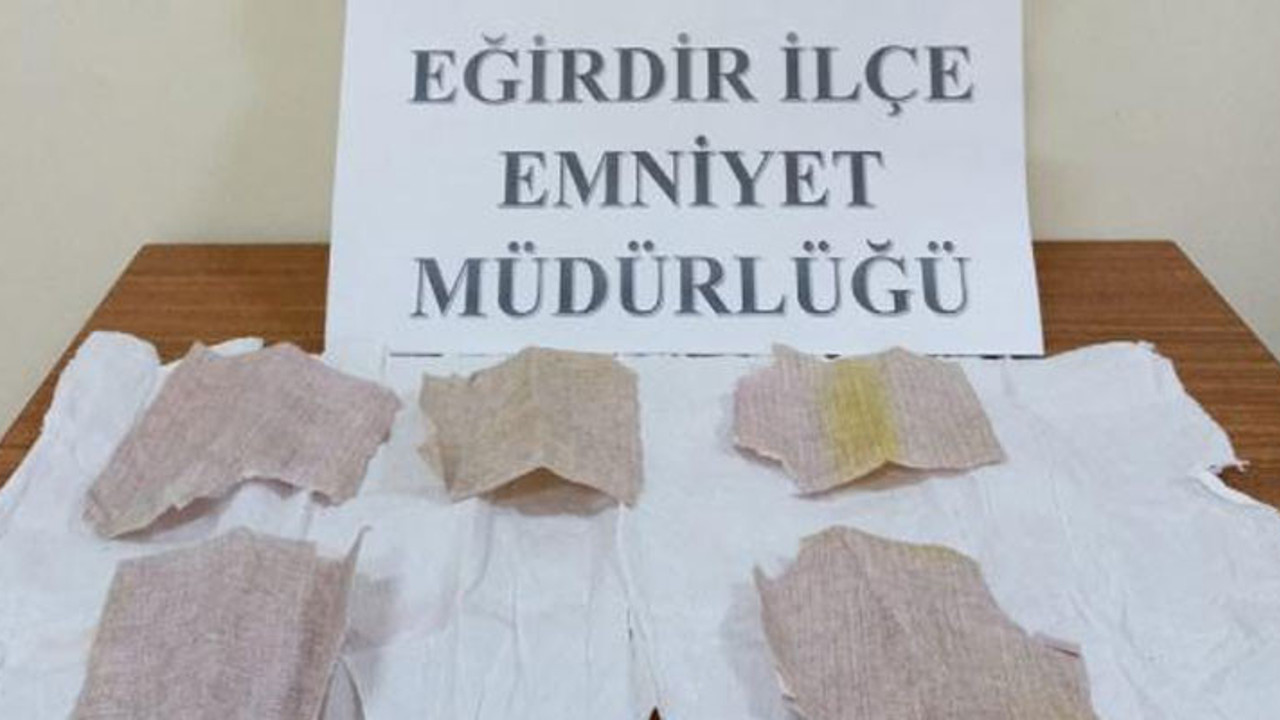 EĞİRDİR İLÇE
EMNİYET
MÜDÜRLÜĞÜ